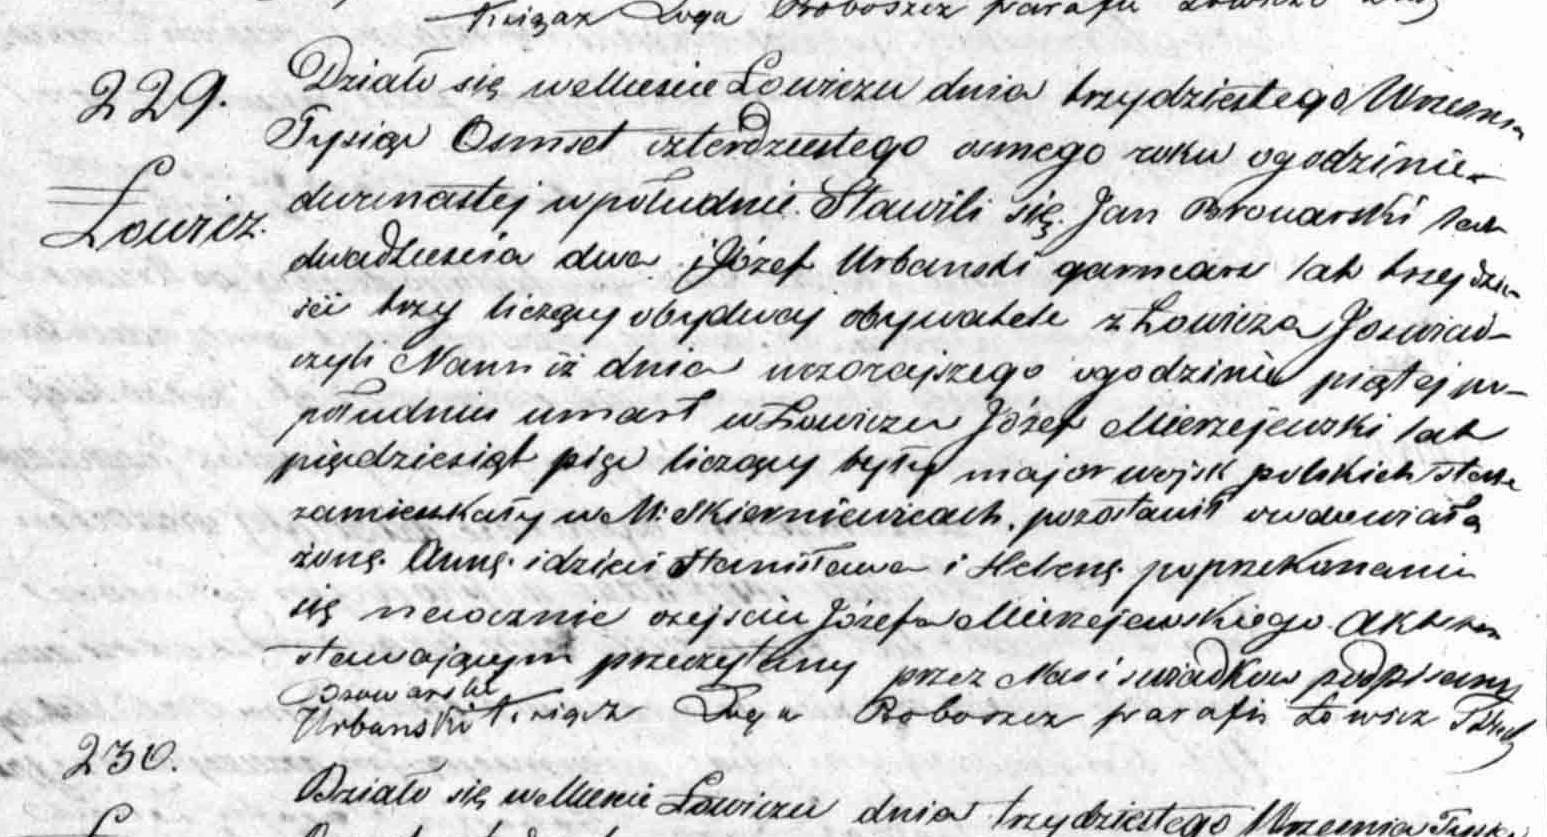 Ksiądz Ługa Proboszcz parafii Łowicz
229.
Łowicz.
Działo się w Mieście Łowiczu dnia trzydziestego Wrzesnia
Tysiąc Osmset czterdziestego osmego roku o godzinie
dwunastej w południe. Stawili się. Jan Browarski lat
dwadzieścia dwa i Józef Urbanski garncarz lat trzydzie-
ści trzy liczący obydwaj obywatele z Łowicza I oswiad-
czyli Nam iż dnia wczorajszego o godzinie piątej po-
południu umarł w Łowiczu Józef Mierzejewski lat
pięćdziesiąt pięć liczący były major wojsk polskich stale
zamieszkały w M. Skierniewicach, pozostawił owdowiałą
żonę. Annę. i dzieci Stanisława i Helenę. po przekonaniu
się naocznie o zejściu Józefa Mierzejewskiego. Akt ten
stawającym przeczytany przez Nas i swiadków podpisany
Browarski
Urbanski Ksiądz Ługa Proboszcz parafii Łowicz
230.
Działo się w Mieście Łowiczu dnia trzydziestego Wrzesnia